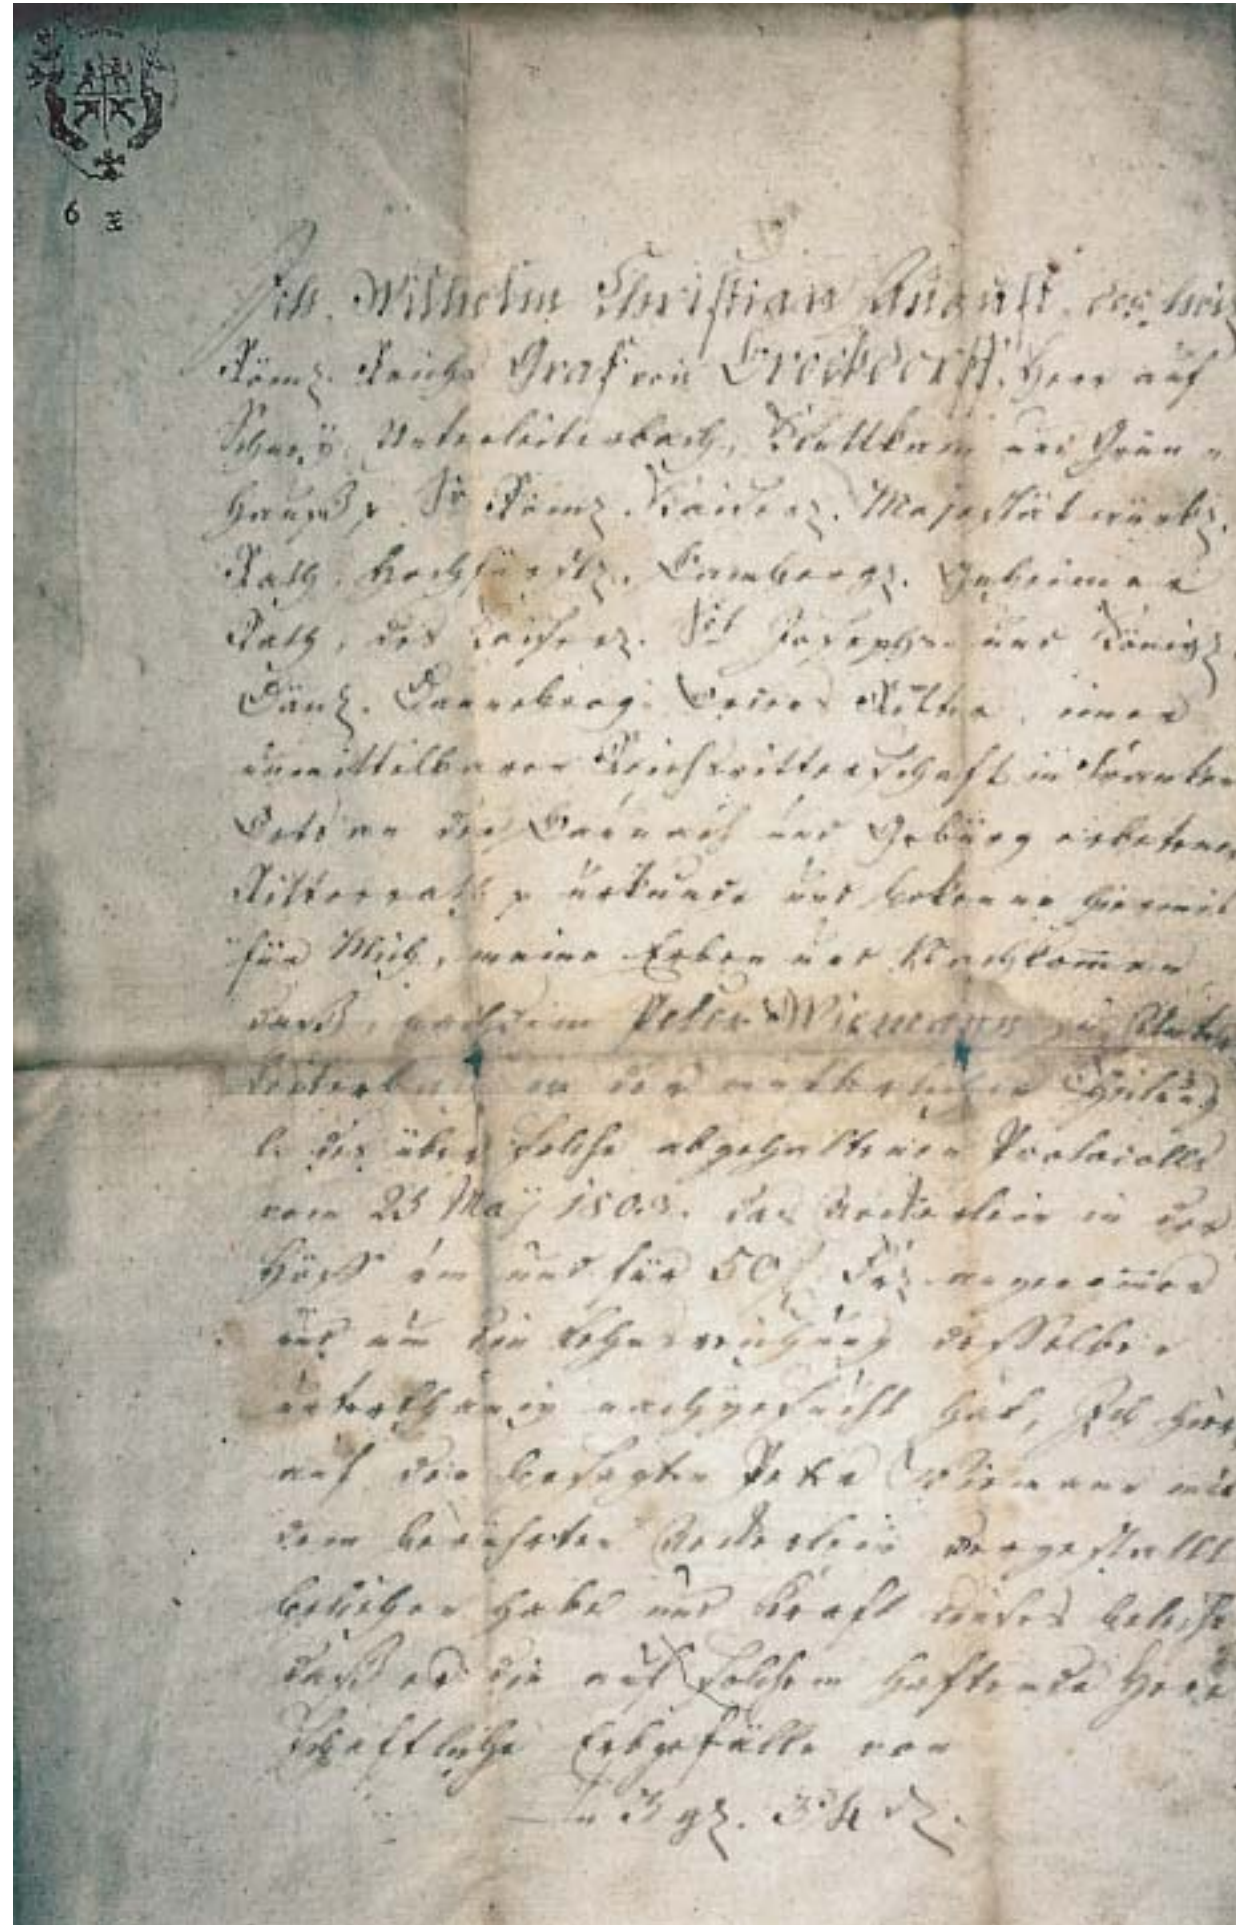 6 
Ich Wilhelm Christian August, des heil.
Römz. Reichs Graf von Brockdorff, Herr auf
Schney, Unterleiterbach, Klettkam und Grün-
Hauß p. Sr Römz. Kaiserz. Majestät würkz.
Rath, Hochfürstlz. Bambergz. Geheimer
Rath, des Kaiserz. Sct Josephs- und Königz.
Dänz. Dannebrog Ordens Ritter, einer
unmittelbaren Reichsritterschaft in Franken
Orts an der Baunach und Gebürg erbetener
Ritterrath p urkunde und bekenne hiermit
für Mich, meine Erben und Nachkommen
daß, nachdem Peter Wiemann zu Unter-
leiterbach in der
l. des über solche abgehaltenen Protocolls
vom 23 May 1803. das Aeckerlein in der
Höll um und für 50 f. angenommen
und um die Lehensreichung desselben
unterthänig nachgesucht hat, Ich hier-
auf den besagten Peter Wiemann mit
dem berührten Aeckerlein dergestallt
beliehen habe und Kraft dieses beleihe
daß er die auf solchem haftende Herr-
schaftliche Erbgefälle von
3 gz. 3¼ dz.